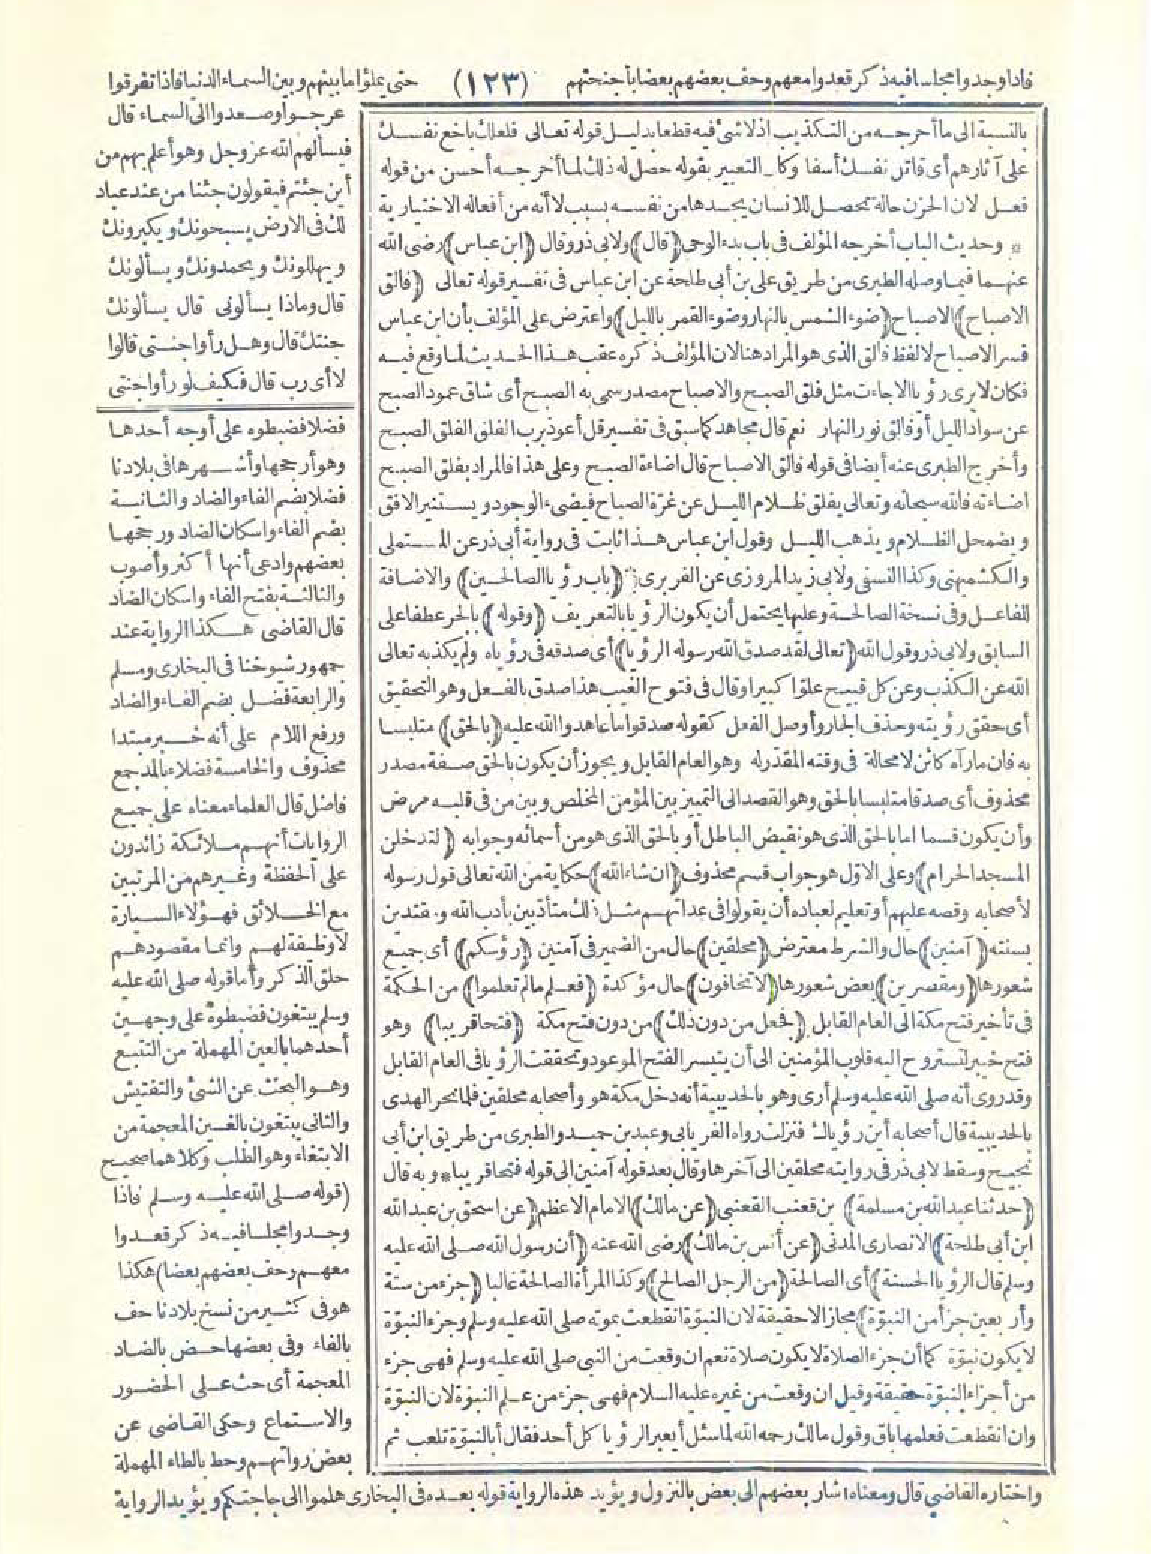 فاذا وجدوا مجلسا فيه ذكر قعدوا معهم وحف بعضهم بعضا بأجنحتهم (١٢٣) حتى يملؤا ما بينهم وبين السماء الدنيا فاذا تفرقوا
عرجوا وصعدوا الى السماء قال
فيسألهم الله عز وجل وهو أعلم بهم من
أين جئتم فيقولون جئنا من عند عباد
لك فى الارض يسبحونك ويكبرونك
ويهللونك ويحمدونك ويسألونك
قال وماذا يسألونى قال يسألونك
جنتك قال وهل رأوا جنتى قالوا
لا أى رب قال فكيف لو رأوا جنتى
بالنسبة الى ما أخرجه من التكذيب اذ لا شئ فيه قطعا بدليل قوله تعالى فلعلك باخع نفسك
على آثارهم أى قاتل نفسك أسفا وكان التعبير بقوله حصل له ذلك لما أخرجه أحسن من قوله
فعل لان الحزن حالة تحصل للانسان يجدها من نفسه بسبب لا أنه من أفعاله الاختيارية
* وحديث الباب أخرجه المؤلف فى باب بدء الوحى (قال) ولابى ذر وقال (ابن عباس) رضى الله
عنهما فيما وصله الطبرى من طريق على بن أبى طلحة عن ابن عباس فى تفسير قوله تعالى (فالق
الاصباح) الاصباح (ضوء الشمس بالنهار وضوء القمر بالليل) واعترض على المؤلف بأن ابن عباس
فسر الاصباح لا لفظ فالق الذى هو المراد هنا لان المؤلف ذكره عقب هذا الحديث لما وقع فيه
فكان لا يرى رؤيا الا جاءت مثل فلق الصبح والاصباح مصدر سمى به الصبح أى شاق عمود الصبح
عن سواد الليل أو فالق نور النهار نعم قال مجاهد كما سبق فى تفسير قل أعوذ برب الفلق الفلق الصبح
وأخرج الطبرى عنه أيضا فى قوله فالق الاصباح قال اضاءة الصبح وعلى هذا فالمراد بفلق الصبح
اضاءته فالله سبحانه وتعالى يفلق ظلام الليل عن غرة الصباح فيضىء الوجود ويستنير الافق
ويضمحل الظلام ويذهب الليل وقول ابن عباس هذا ثابت فى رواية أبى ذر عن المستملى
والكشميهنى وكذا النسفى ولابى زيد المروزى عن الفربرى * (باب رؤيا الصالحين) والاضافة
للفاعل وفى نسخة الصالحة وعليها يحتمل أن يكون الرؤيا بالتعريف (وقوله) بالجر عطفا على
السابق ولابى ذر وقول الله (تعالى لقد صدق الله رسوله الرؤيا) أى صدقه فى رؤياه ولم يكذبه تعالى
الله عن الكذب وعن كل قبيح علوا كبيرا وقال فى فتوح الغيب هذا صدق بالفعل وهو التحقيق
أى حقق رؤيته وحذف الجار وأوصل الفعل كقوله صدقوا ما عاهدوا الله عليه (بالحق) متلبسا
به فان ما رآه كائن لا محالة فى وقته المقدر له وهو العام القابل ويجوز أن يكون بالحق صفة مصدر
محذوف أى صدقا متلبسا بالحق وهو القصد الى التمييز بين المؤمن المخلص وبين من فى قلبه مرض
وأن يكون قسما اما بالحق الذى هو نقيض الباطل أو بالحق الذى هو من أسمائه وجوابه (لتدخلن
المسجد الحرام) وعلى الاول هو جواب قسم محذوف (ان شاء الله) حكاية من الله تعالى قول رسوله
لأصحابه وقصه عليهم أو تعليم لعباده أن يقولوا فى عداتهم مثل ذلك متأدبين بأدب الله ومقتدين
بسنته (آمنين) حال والشرط معترض (محلقين) حال من الضمير فى آمنين (رؤسكم) أى جميع
شعورها (ومقصرين) بعض شعورها (لا تخافون) حال مؤكدة (فعلم ما لم تعلموا) من الحكمة
فى تأخير فتح مكة الى العام القابل (فجعل من دون ذلك) من دون فتح مكة (فتحا قريبا) وهو
فتح خيبر لتستروح اليه قلوب المؤمنين الى أن يتيسر الفتح الموعود وتحققت الرؤيا فى العام القابل
وقد روى أنه صلى الله عليه وسلم أرى وهو بالحديبية أنه دخل مكة هو وأصحابه محلقين فلما نحر الهدى
بالحديبية قال أصحابه أين رؤياك فنزلت رواه الفريابى وعبد بن حميد والطبرى من طريق ابن أبى
نجيح وسقط لابى ذر فى روايته محلقين الى آخرها وقال بعد قوله آمنين الى قوله فتحا قريبا * وبه قال
(حدثنا عبد الله بن مسلمة) بن قعنب القعنبى (عن مالك) الامام الاعظم (عن اسحق بن عبد الله
ابن أبى طلحة) الانصارى المدنى (عن أنس بن مالك) رضى الله عنه (أن رسول الله صلى الله عليه
وسلم قال الرؤيا الحسنة) أى الصالحة (من الرجل الصالح) وكذا المرأة الصالحة غالبا (جزء من ستة
وأربعين جزأ من النبوة) مجازا لا حقيقة لان النبوة انقطعت بموته صلى الله عليه وسلم وجزء النبوة
لا يكون نبوة كما أن جزء الصلاة لا يكون صلاة نعم ان وقعت من النبى صلى الله عليه وسلم فهى جزء
من أجزاء النبوة حقيقة وقيل ان وقعت من غيره عليه السلام فهى جزء من علم النبوة لان النبوة
وان انقطعت فعلمها باق وقول مالك رحمه الله لما سئل أيعبر الرؤيا كل أحد فقال أبالنبوة تلعب ثم
فضلا فضبطوه على أوجه أحدها
وهو أرجحها وأشهرها فى بلادنا
فضلا بضم الفاء والضاد والثانية
بضم الفاء واسكان الضاد ورجحها
بعضهم وادعى أنها أكثر وأصوب
والثالثة بفتح الفاء واسكان الضاد
قال القاضى هكذا الرواية عند
جمهور شيوخنا فى البخارى ومسلم
والرابعة فضل بضم الفاء والضاد
ورفع اللام على أنه خبر مبتدا
محذوف والخامسة فضلاء بالمد جمع
فاضل قال العلماء معناه على جميع
الروايات أنهم ملائكة زائدون
على الحفظة وغيرهم من المرتبين
مع الخلائق فهؤلاء السيارة
لا وظيفة لهم وانما مقصودهم
حلق الذكر وأما قوله صلى الله عليه
وسلم يبتغون فضبطوه على وجهين
أحدهما بالعين المهملة من التتبع
وهو البحث عن الشئ والتفتيش
والثانى يبتغون بالغين المعجمة من
الابتغاء وهو الطلب وكلاهما صحيح
(قوله صلى الله عليه وسلم فاذا
وجدوا مجلسا فيه ذكر قعدوا
معهم وحف بعضهم بعضا) هكذا
هو فى كثير من نسخ بلادنا حف
بالفاء وفى بعضها حض بالضاد
المعجمة أى حث على الحضور
والاستماع وحكى القاضى عن
بعض رواتهم وحط بالطاء المهملة
واختاره القاضى قال ومعناه اشار بعضهم الى بعض بالنزول ويؤيد هذه الرواية قوله بعده فى البخارى هلموا الى حاجتكم ويؤيد الرواية